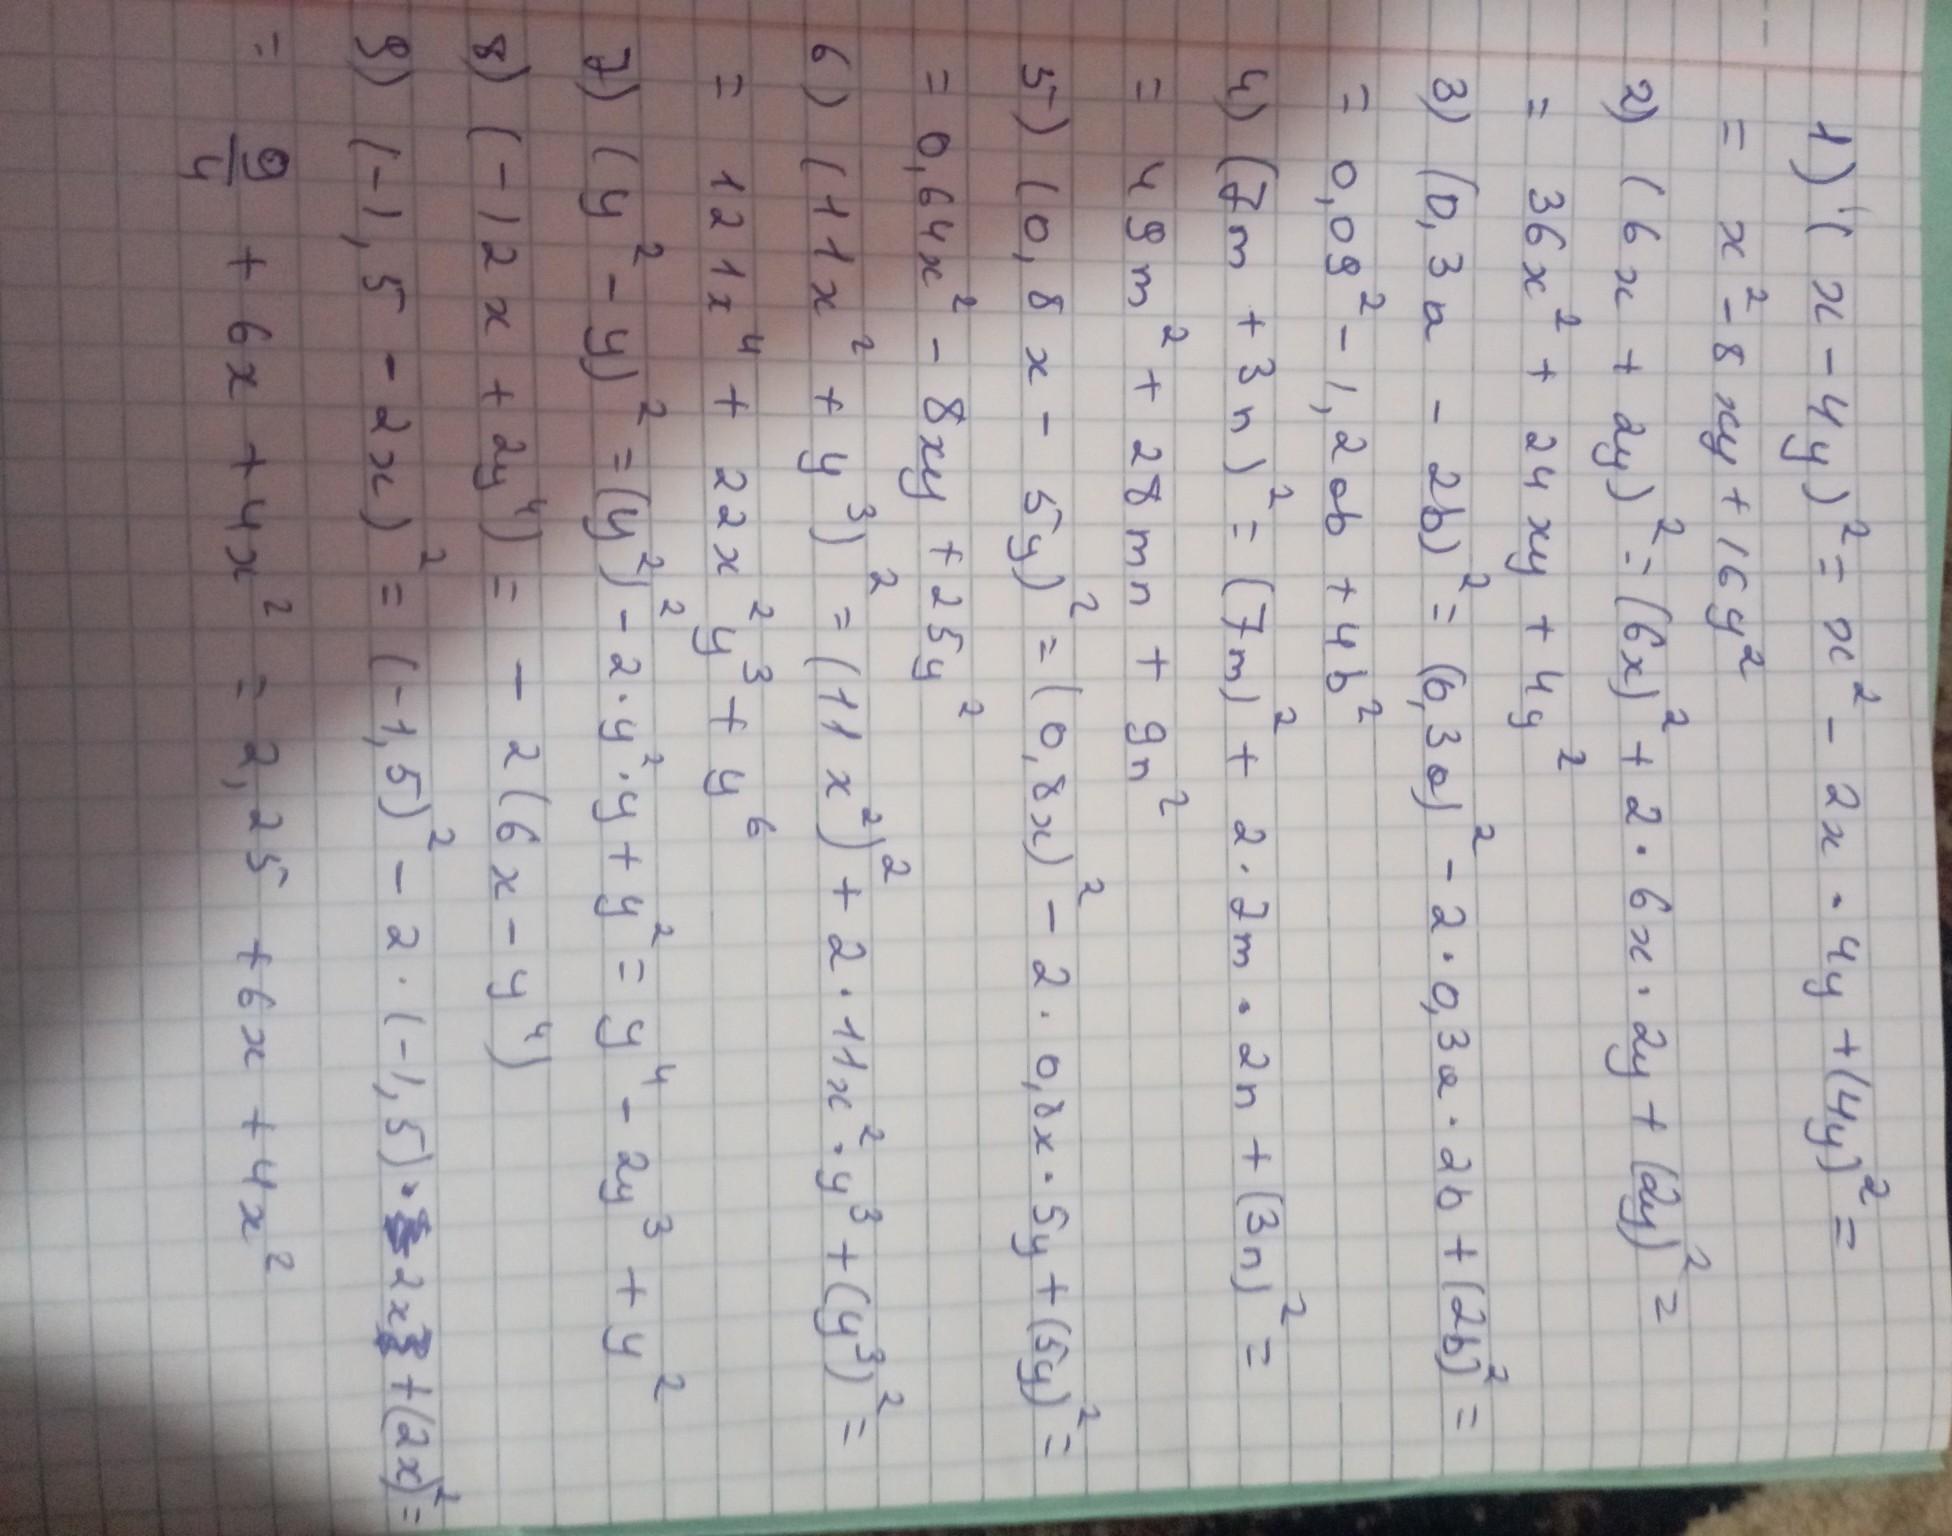 1) (x - 4y)² = x² - 2x · 4y + (4y)² =
= x² - 8xy + 16y²
2) (6x + 2y)² = (6x)² + 2 · 6x · 2y + (2y)² =
= 36x² + 24xy + 4y²
3) (0,3a - 2b)² = (0,3a)² - 2 · 0,3a · 2b + (2b)² =
= 0,09² - 1,2ab + 4b²
4) (7m + 3n)² = (7m)² + 2 · 7m · 2n + (3n)² =
= 49m² + 28mn + 9n²
5) (0,8x - 5y)² = (0,8x)² - 2 · 0,8x · 5y + (5y)² =
= 0,64x² - 8xy + 25y²
6) (11x² + y³)² = (11x²)² + 2 · 11x² · y³ + (y³)² =
= 121x⁴ + 22x²y³ + y⁶
7) (y² - y)² = (y²)² - 2 · y² · y + y² = y⁴ - 2y³ + y²
8) (-12x + 2y⁴) = - 2(6x - y⁴)
9) (-1,5 - 2x)² = (-1,5)² - 2 · (-1,5) · 2x + (2x)² =
= 9/4 + 6x + 4x² = 2,25 + 6x + 4x²